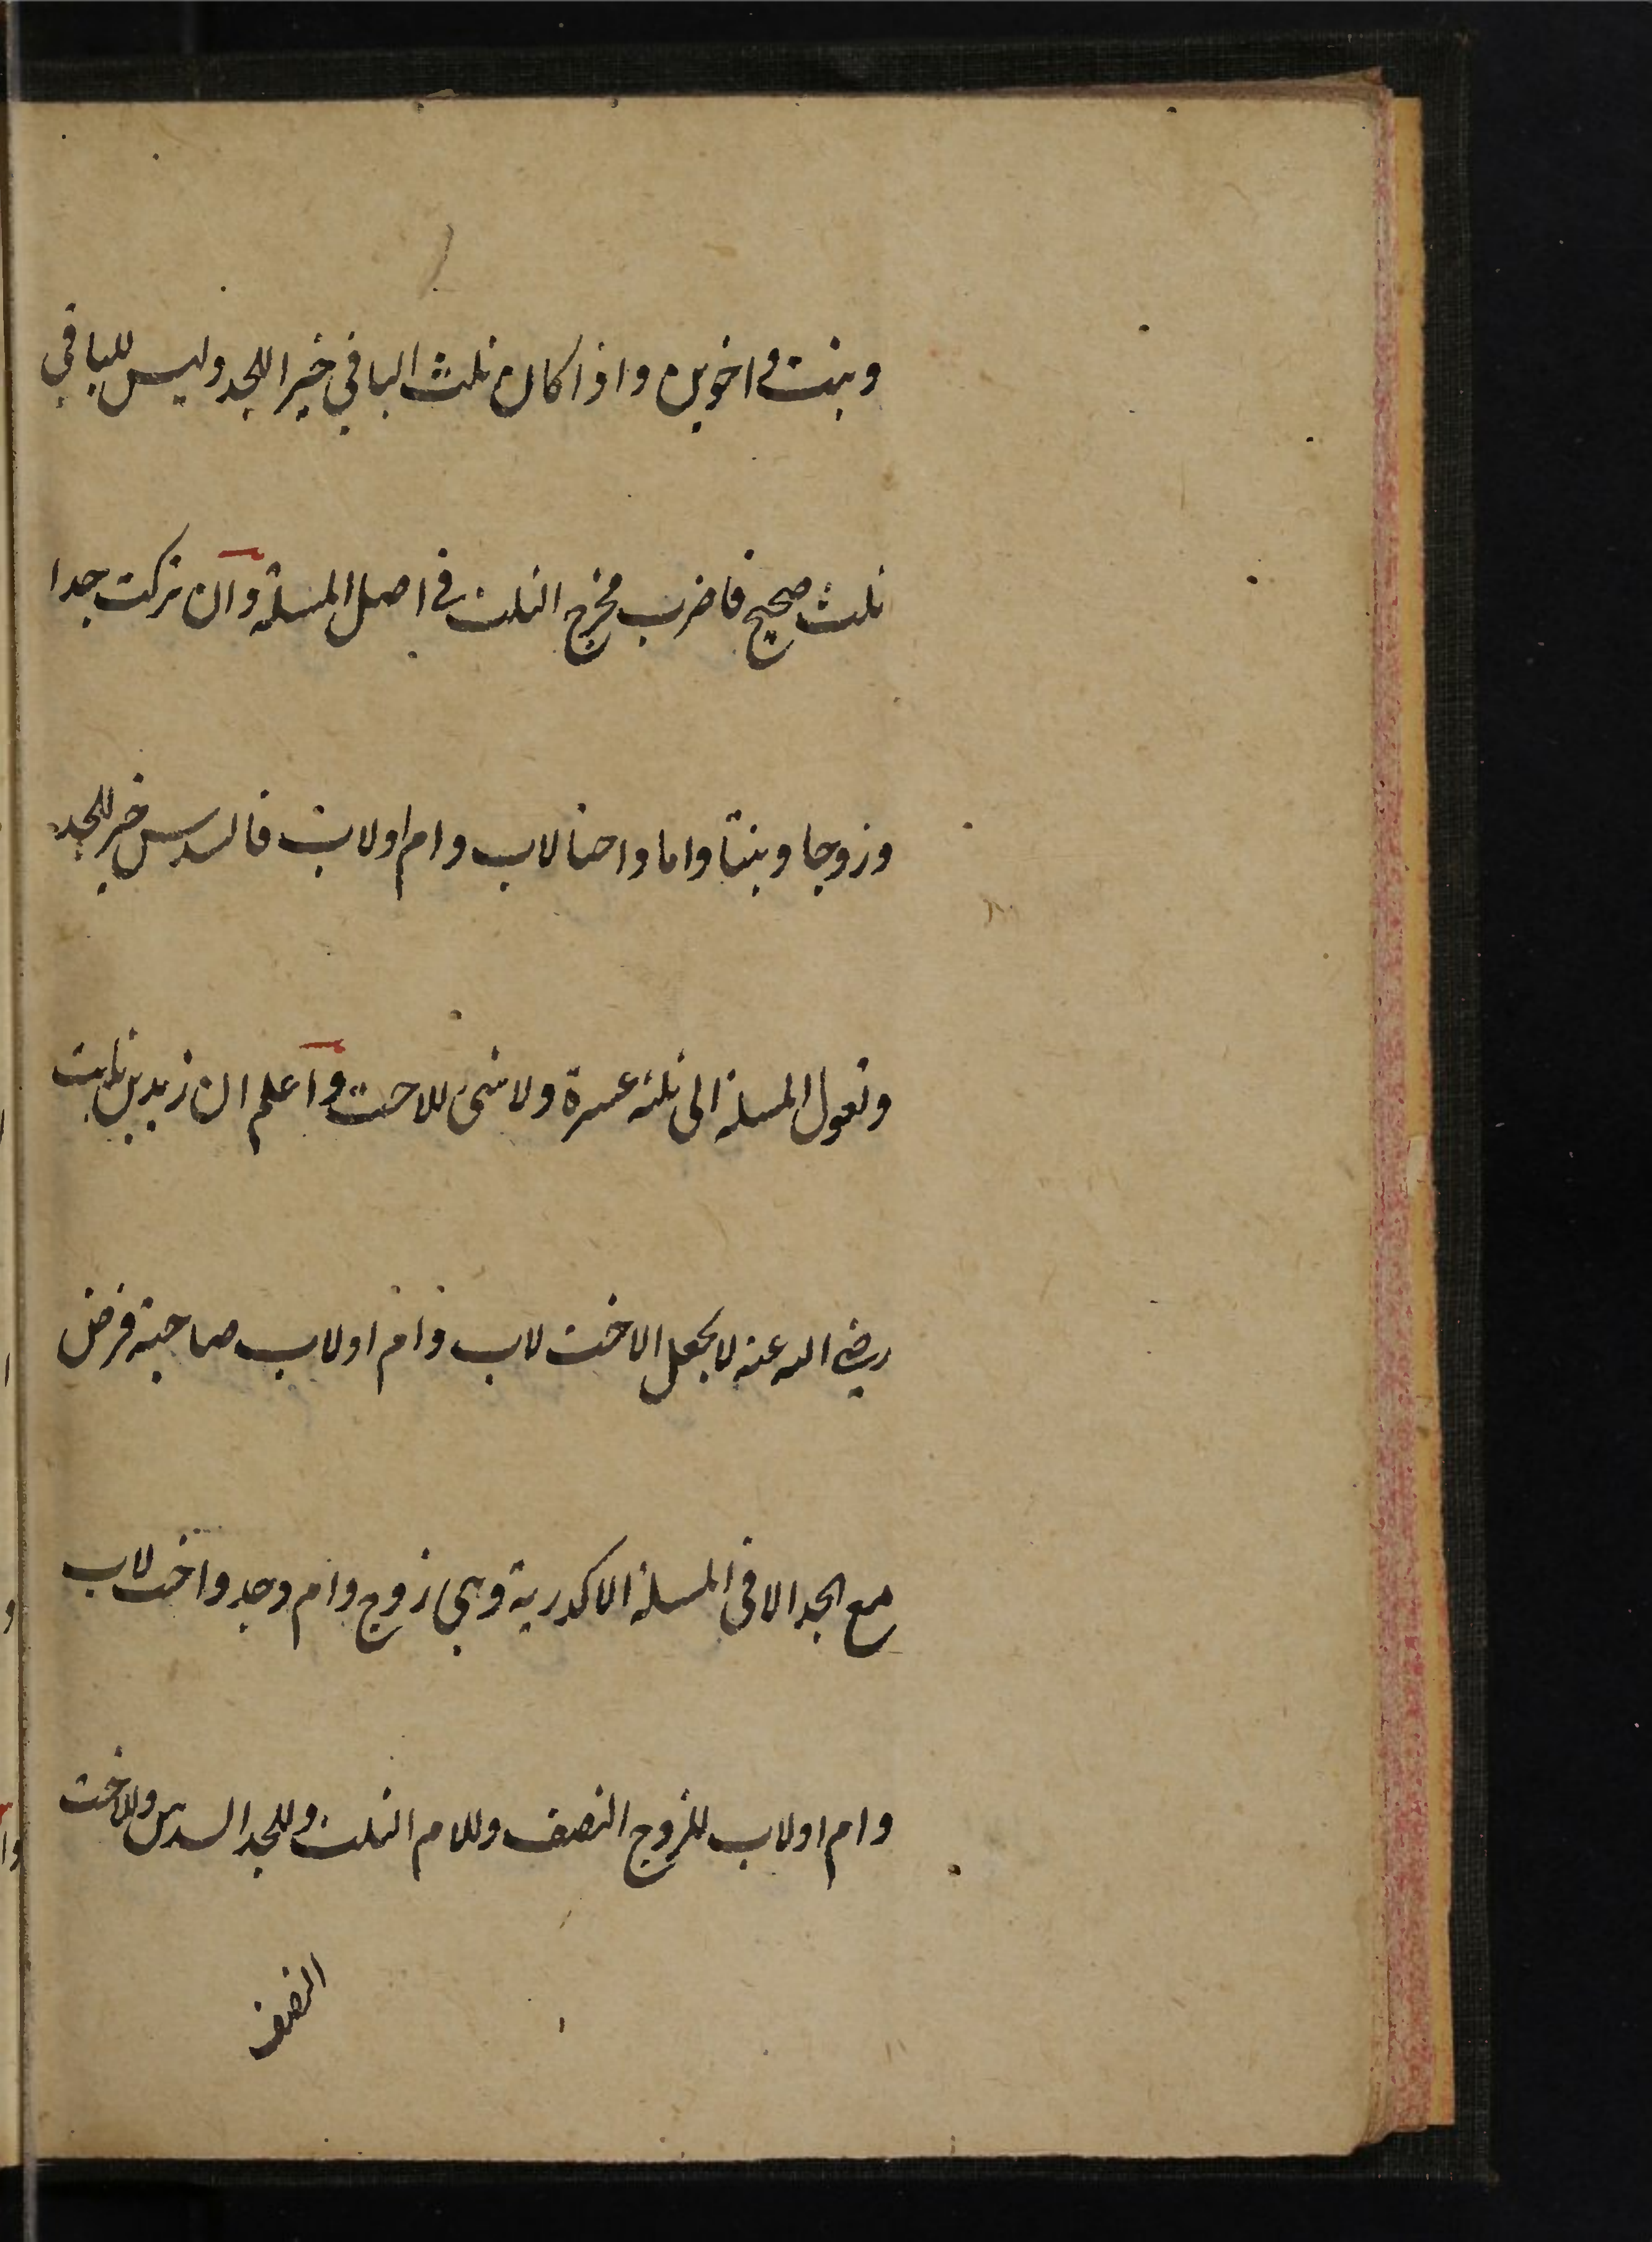 وبنت واخوين واذا كان ثلث الباقي خيرا للجد وليس للباقي
ثلث صحيح فاضرب مخرج الثلث في اصل المسئلة وان تركت جدا
وزوجا وبنتا واما واختا لاب وام اولاب فالسدس خير للجد
وتعول المسئلة الى ثلثة عشرة ولا شئ للاخت واعلم ان زيد بن ثابت
رضي الله عنه لا يجعل الاخت لاب وام اولاب صاحبة فرض
مع الجد الا في المسئلة الاكدرية وهي زوج وام وجد واخت لاب
وام اولاب للزوج النصف وللام الثلث وللجد السدس وللاخت
النصف